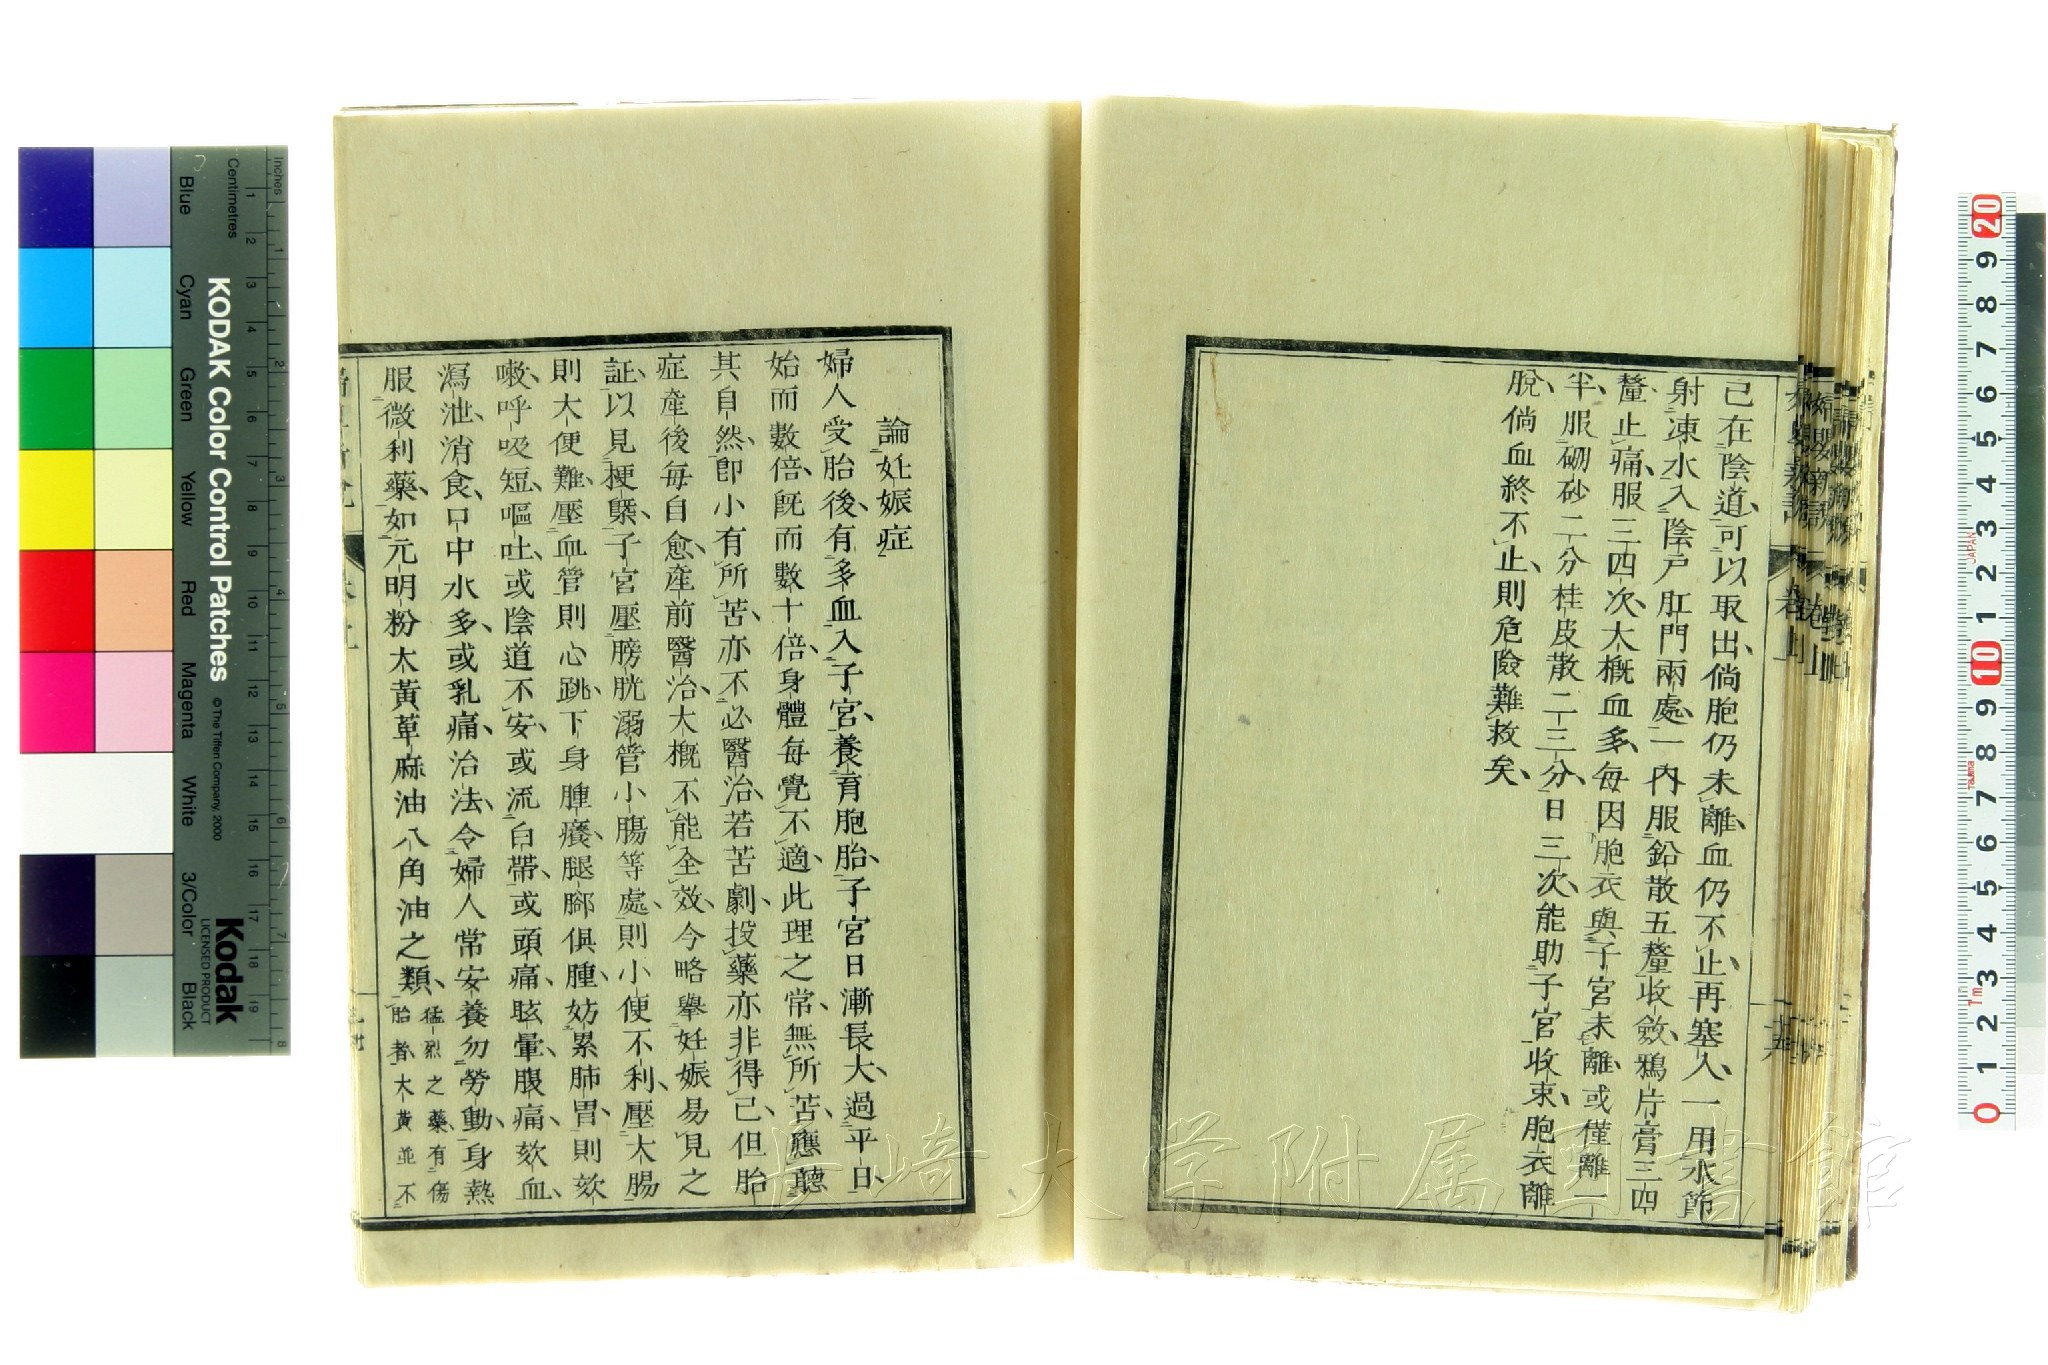 已在陰道、可以取出、倘胞仍未離、血仍不止、再塞入、一用水節
射凍水入陰戶肛門兩處、一內服鉛散五釐收斂、鴉片膏三四
釐止痛、服三四次、大概血多、每因胞衣與子宮未離、或僅離一
半、服硼砂二分桂皮散二三分、日三次、能助子宮收束、胞衣離
脫、倘血終不止、則危險難救矣、
論妊娠症
婦人受胎後、有多血入子宮、養育胞胎、子宮日漸長大、過平日、
始而數倍、既而數十倍、身體每覺不適、此理之常、無所苦、應聽
其自然、卽小有所苦、亦不必醫治、若苦劇、投藥亦非得已、但胎
症產後每自愈、產前醫治、大概不能全效、今略舉妊娠易見之
証、以見梗槩、子宮壓膀胱溺管小腸等處、則小便不利、壓大腸
則大便難、壓血管則心跳、下身腫癢、腿腳俱腫、妨累肺胃、則欬
嗽、呼吸短、嘔吐、或陰道不安、或流白帶、或頭痛、眩暈、腹痛、欬血、
瀉泄、消食、口中水多、或乳痛、治法、令婦人常安養勿勞動、身熱
服微利藥、如元明粉大黃草麻油八角油之類、猛烈之藥有傷
胎者、大黃並不
婦嬰新說
卷上
十五
KODAK Color Control Patches
© The Tiffen Company, 2000
Kodak
LICENSED PRODUCT
Inches
Centimetres
Blue
Cyan
Green
Yellow
Red
Magenta
White
3/Color
Black
1 2 3 4 5 6 7 8 9 10 11 12 13 14 15 16 17 18 19
20 9 8 7 6 5 4 3 2 1 10 9 8 7 6 5 4 3 2 1 0
JAPAN
長崎大学附属図書館